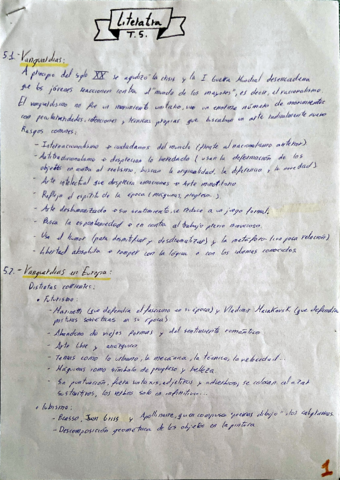 Literatura
T.5.
5.1.- Vanguardias:
A principio del siglo XX se agudiza la crisis y la I Guerra Mundial desencadena
que los jóvenes reaccionen contra el "mundo de los mayores", es decir, el racionalismo.
El vanguardismo no fue un movimiento unitario, sino un inmenso número de movimientos
con personalidades, intenciones y técnicas propias que buscaban un arte radicalmente nuevo
Rasgos comunes:
- Internacionalismo o ciudadanos del mundo (frente al nacionalismo anterior)
- Antitradicionalismo o desprecian lo heredado (usan la deformación de los
objetos en contra el realismo, buscan la originalidad, lo diferente, la novedad)
- Arte intelectual que desprecia emociones o Arte minoritario
- Refleja el espíritu de la época (máquinas, progreso...)
- Arte deshumanizado o sin sentimiento, se reduce a un juego formal.
- Busca la espontaneidad en contra al trabajo
- Usa el humor (para desmitificar y desdramatizar) y la metáfora
- Libertad absoluta o romper con la lógica o con los idiomas conocidos
5.2.- Vanguardias en Europa:
Distintas corrientes:
• Futurismo
- Marinetti (que defendía el fascismo en su época) y Vladimir (que defendía
posturas soviéticas en su época)
- Abandono de viejas formas y del sentimiento romántico
- Arte libre y anárquico
- Temas como lo urbano, la mecánica, la técnica, la velocidad...
- Máquinas como símbolo de progreso y belleza
- Sin puntuación, fuera adjetivos y adverbios, se colocan al azar
sustantivos, los verbos solo en infinitivo...
• Cubismo
- Picasso, Juan Gris y Apollinaire, quien
- Descomposición geométrica de los objetos en la pintura
1